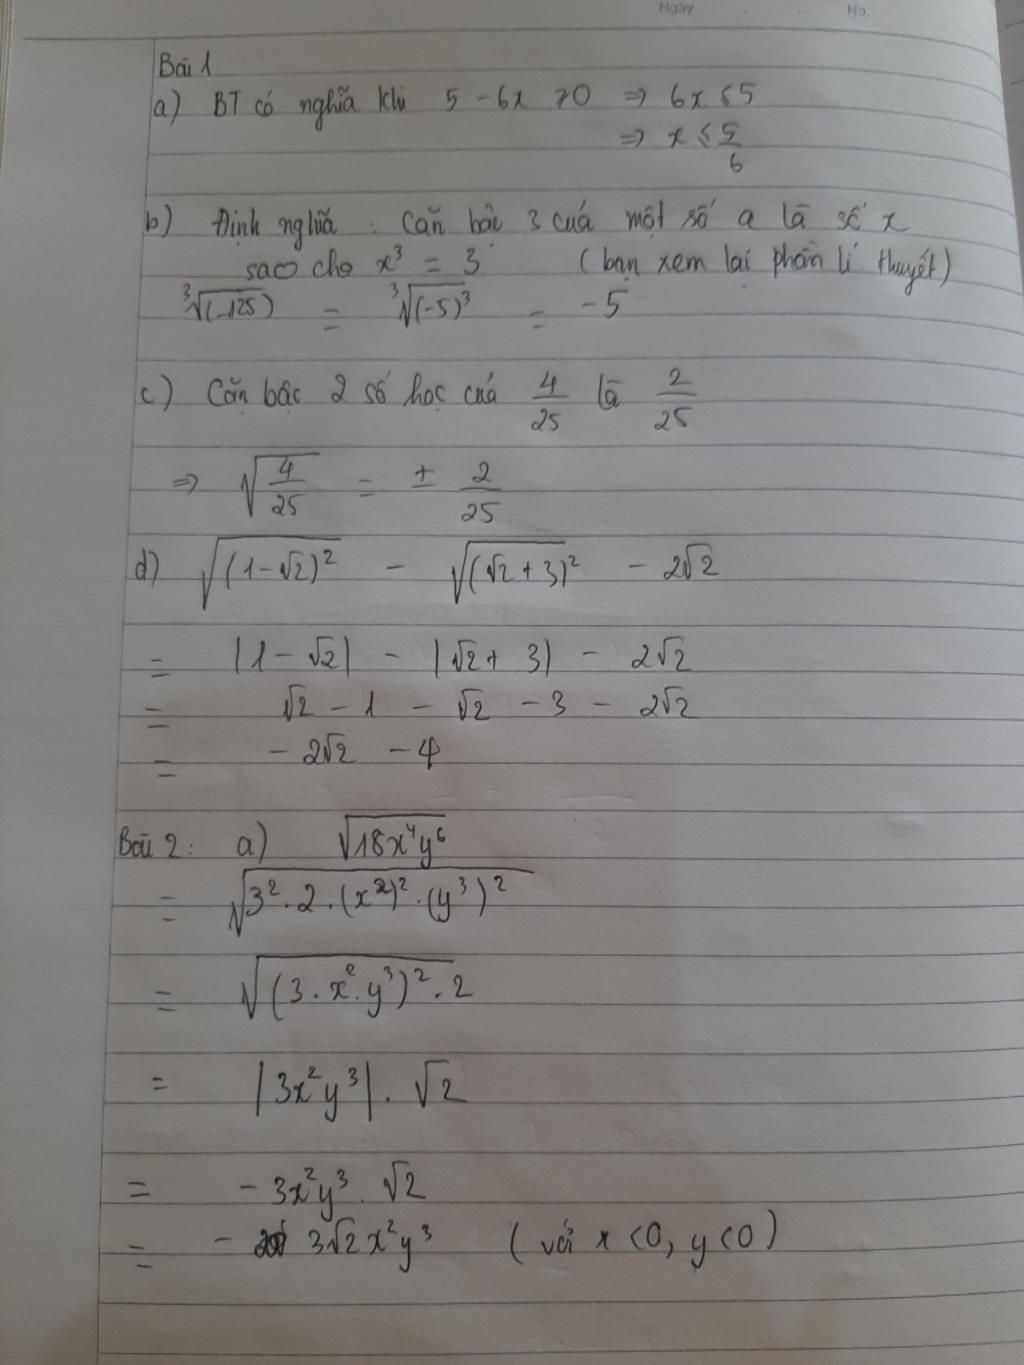 Ngày No.
Bài 1
a) BT có nghĩa khi 5 - 6x ⩾ 0 => 6x ⩽ 5
=> x ⩽ 5/6
b) Định nghĩa : Căn bậc 3 của một số a là số x
sao cho x³ = 3 (bạn xem lại phần lí thuyết)
∛(-125) = ∛(-5)³ = -5
c) Căn bậc 2 số học của 4/25 là 2/25
=> √(4/25) = ± 2/25
d) √((1-√2)²) - √((√2+3)²) - 2√2
= |1-√2| - |√2+ 3| - 2√2
= √2 - 1 - √2 - 3 - 2√2
= - 2√2 - 4
Bài 2: a) √(18x⁴y⁶)
= √(3².2.(x²)².(y³)²)
= √((3.x².y³)².2)
= |3x²y³|.√2
= - 3x²y³.√2
= - 3√2x²y³ (với x<0, y<0)